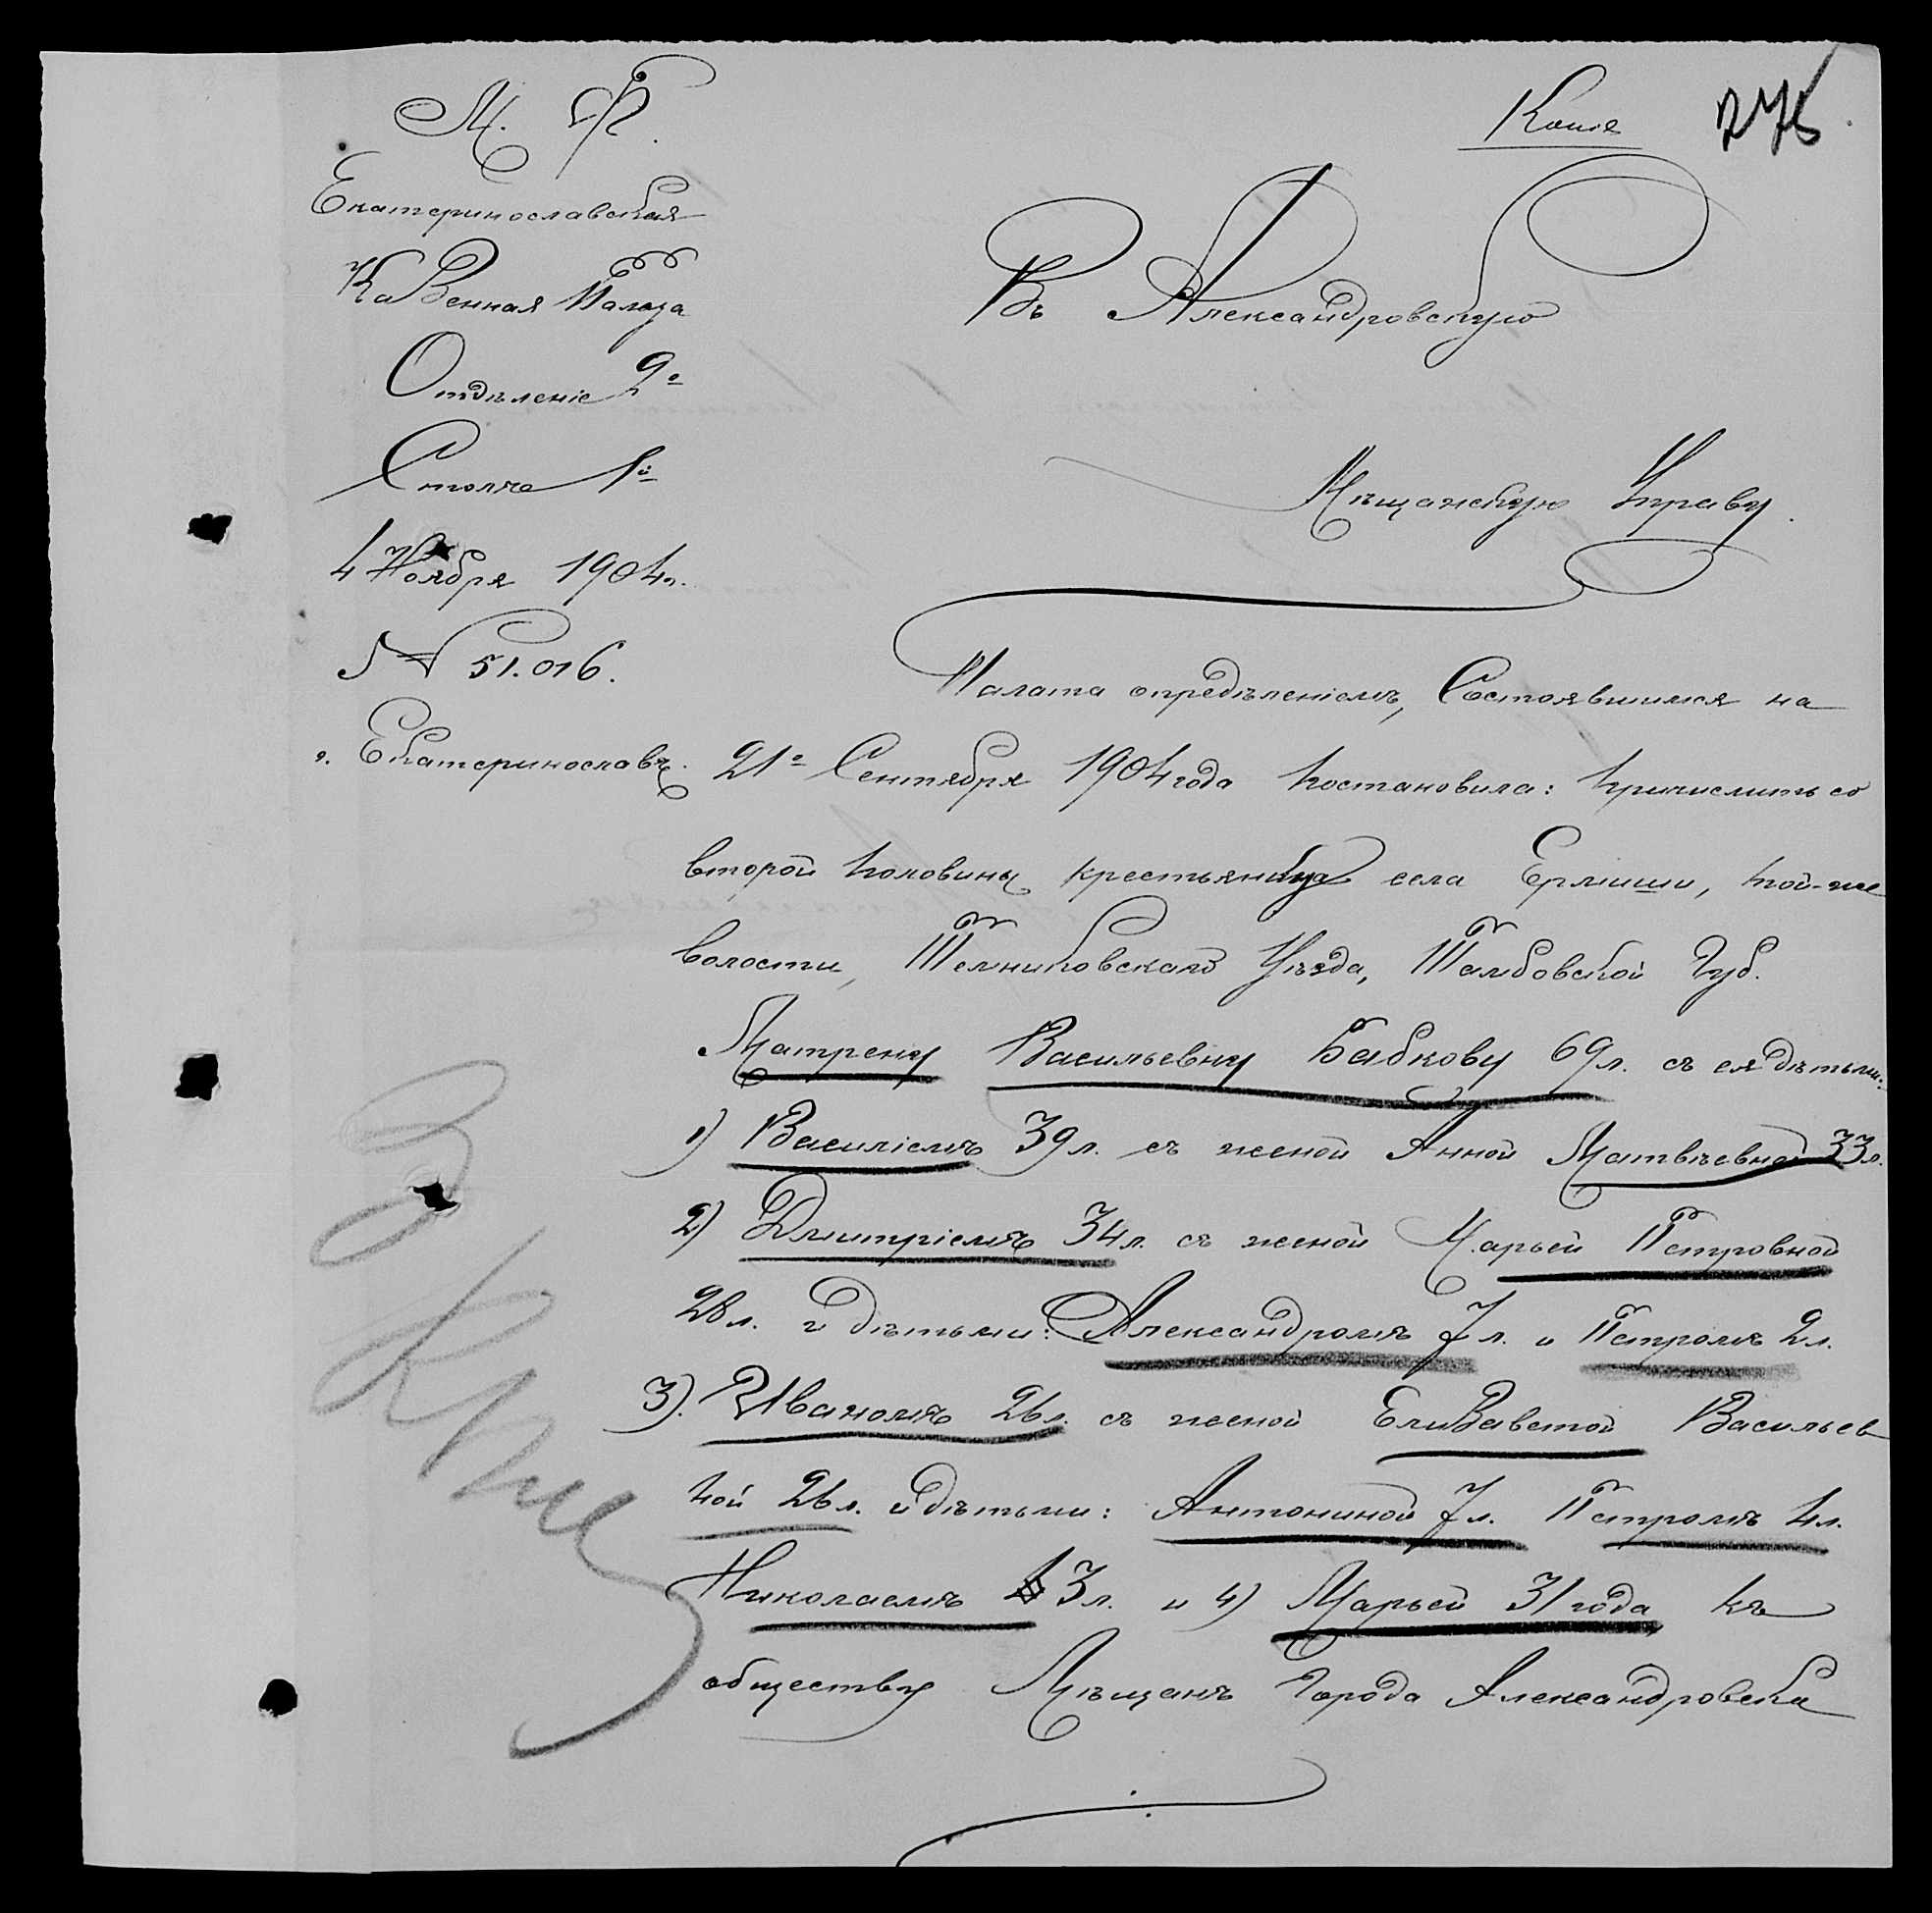 М. Ф.
Екатеринославская
Казенная Палата
Отдѣленіе 2е
Столъ 1й
4 Ноября 1904 г.
№ 51.016.
г. Екатеринославъ.
Копія
276
Въ Александровскую
Мѣщанскую Управу.
Палата опредѣленіемъ, Состоявшимся на
21е Сентября 1904 года постановила: причислить со
второй половины
села Ермиши, той-же
волости, Темниковскаго Уѣзда, Тамбовской Губ.
Матрену Васильевну Бабкову 69 л. съ ея дѣтьми:
1) Василіемъ 39 л. съ женой Анной Матвѣевной 33 л.
2) Дмитріемъ 34 л. съ женой Марьей Петровной
28 л. и дѣтьми: Александромъ 7 л. и Петромъ 2 л.
3). Иваномъ 26 л. съ женой Елизаветой Васильев
ной 26 л. и дѣтьми: Антониной 7 л. Петромъ 4 л.
Николаемъ 3 л. и 4) Марьей 31 года къ
обществу Мѣщанъ Города Александровска